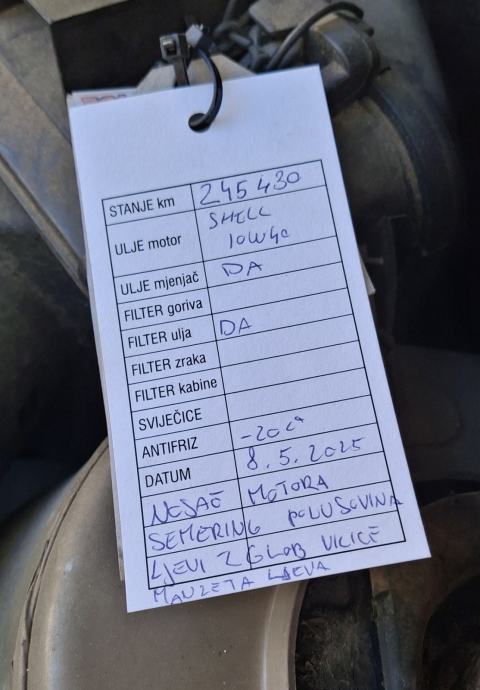 STANJE km 245 430
ULJE motor SHELL 10W40
ULJE mjenjač DA
FILTER goriva
FILTER ulja DA
FILTER zraka
FILTER kabine
SVIJEĆICE
ANTIFRIZ -20C°
DATUM 8.5.2025
NOSAČ MOTORA
SEMERING POLUSOVINA
LJEVI ZGLOB VILICE
MANZETA LJEVA